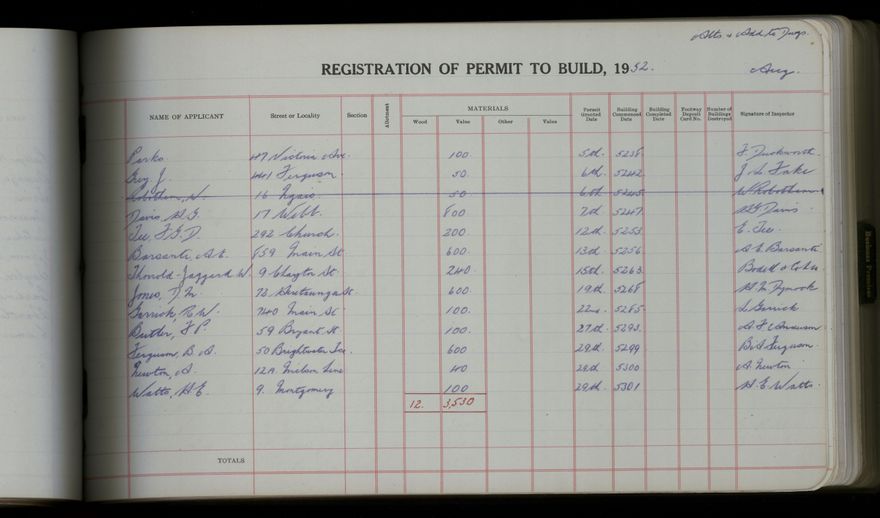 Alts & Add to Dwgs.
REGISTRATION OF PERMIT TO BUILD, 1952.
Aug.
NAME OF APPLICANT Street or Locality Section Allotment MATERIALS Permit Granted Date Building Commenced Date Building Completed Date Footway Deposit Card No. Number of Buildings Destroyed Signature of Inspector
Wood Value Other Value
Parks 47 Victoria Ave. 100. 5th. 5238 F. Duckworth.
Guy, J. 441 Ferguson 50. 6th. 5242 J. L. Fake
W. 16 Ngaio 50 6th 5245 W Robotham
Davis, H.G. 17 Webb. 800 7th 5247 H G Davis
Tee, F.G.D 292 Church. 200 12th 5253 E. Tee.
Barsanti, A.E. 859 Main St 600. 13th 5256 A. E. Barsanti
Thorold-Jaggard W. 9 Clayton St. 240. 15th 5263
Jones, D.M. 72, St. 600. 19th 5268 H M Dymock
Garrick, R.W. 740 Main St 100. 22nd. 5285. L Garrick
Butler, F.P. 59 Bryant St 100. 27th. 5293.
Ferguson, B.A. 50 Brightwater Tce. 600 29th 5299 B A Ferguson.
Newton, A. 12A Milson Line 40 29th 5300 A. Newton
Watts, H.E. 9. Montgomery 100 29th 5301 H. E. Watts.
12. 3,530
TOTALS